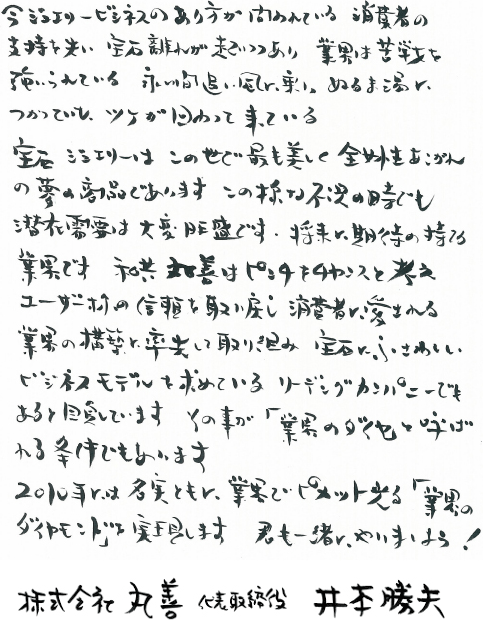 今ジュエリービジネスのあり方が問われている 消費者の
支持を失い 宝石離れが起いつつあり 業界は苦戦を
強いられている 永い間追い風に乗り ぬるま湯に
つかっていた ツケが回わって来ている
宝石 ジュエリーは この世で最も美しく 全女性あこがれ
の夢の商品であります この様な不況の時でも
潜在需要は大変旺盛です・将来に期待の持てる
業界です 私共 丸善はピンチをチャンスと考え
ユーザー様の信頼を取り戻し 消費者に愛される
業界の構築に率先して取り組み 宝石にふさわしい
ビジネスモデルを求めている リーデングカンパニーでも
あると自負しています その事が「業界のダイヤ」と呼ば
れる条件でもあります
2010年には名実ともに、業界でピカット光る「業界の
ダイヤモンド」を実現します 君も一緒にやりましょう!
株式会社 丸善 代表取締役 井本勝夫